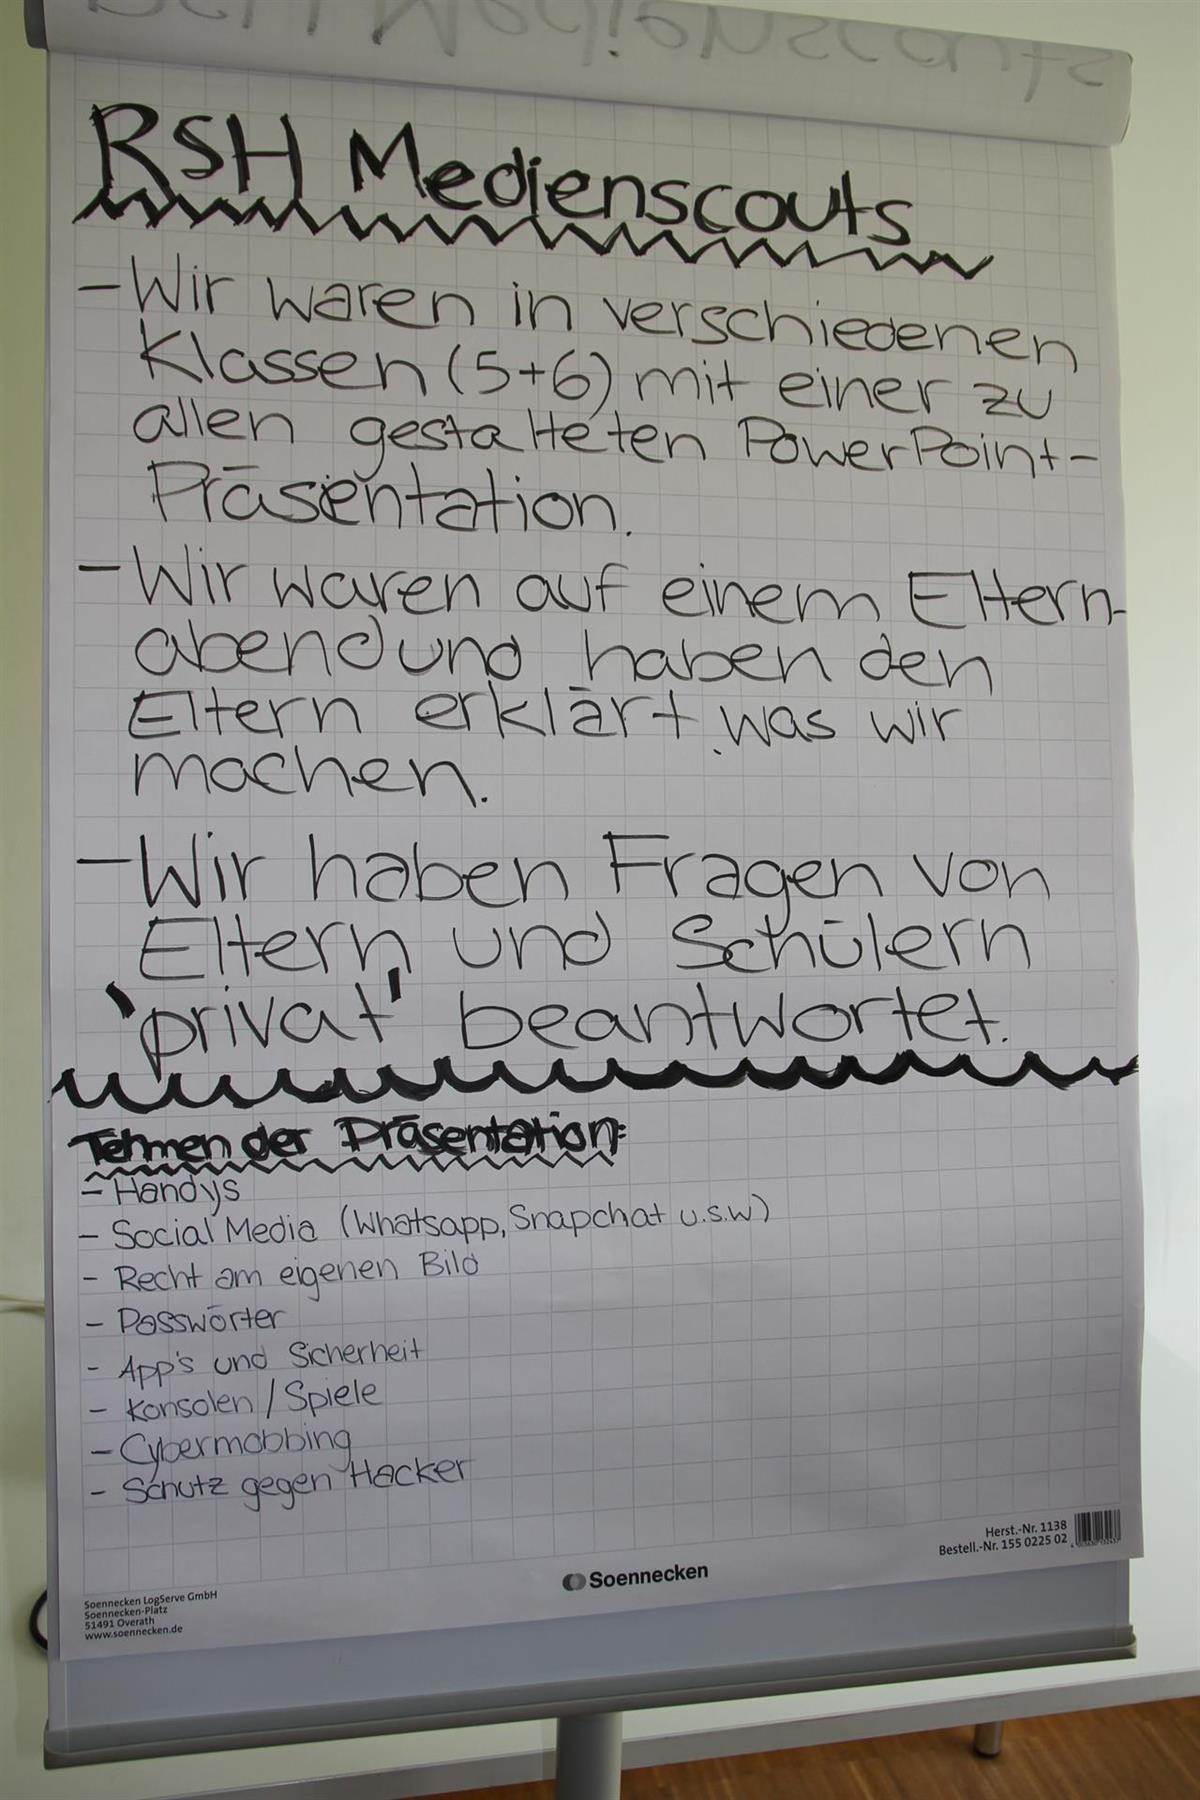 RSH Medienscouts
- Wir waren in verschiedenen
Klassen (5+6) mit einer zu
allen gestalteten PowerPoint-
Präsentation.
- Wir waren auf einem Eltern-
abend und haben den
Eltern erklärt was wir
machen.
- Wir haben Fragen von
Eltern und Schülern
'privat' beantwortet.
Tehmen der Präsentation:
- Handys
- Social Media (Whatsapp, Snapchat u.s.w)
- Recht am eigenen Bild
- Passwörter
- App's und Sicherheit
- Konsolen / Spiele
- Cybermobbing
- Schutz gegen Hacker
Herst.-Nr. 1138
Bestell.-Nr. 155 0225 02
Soennecken
Soennecken LogServe GmbH
Soennecken-Platz
51491 Overath
www.soennecken.de